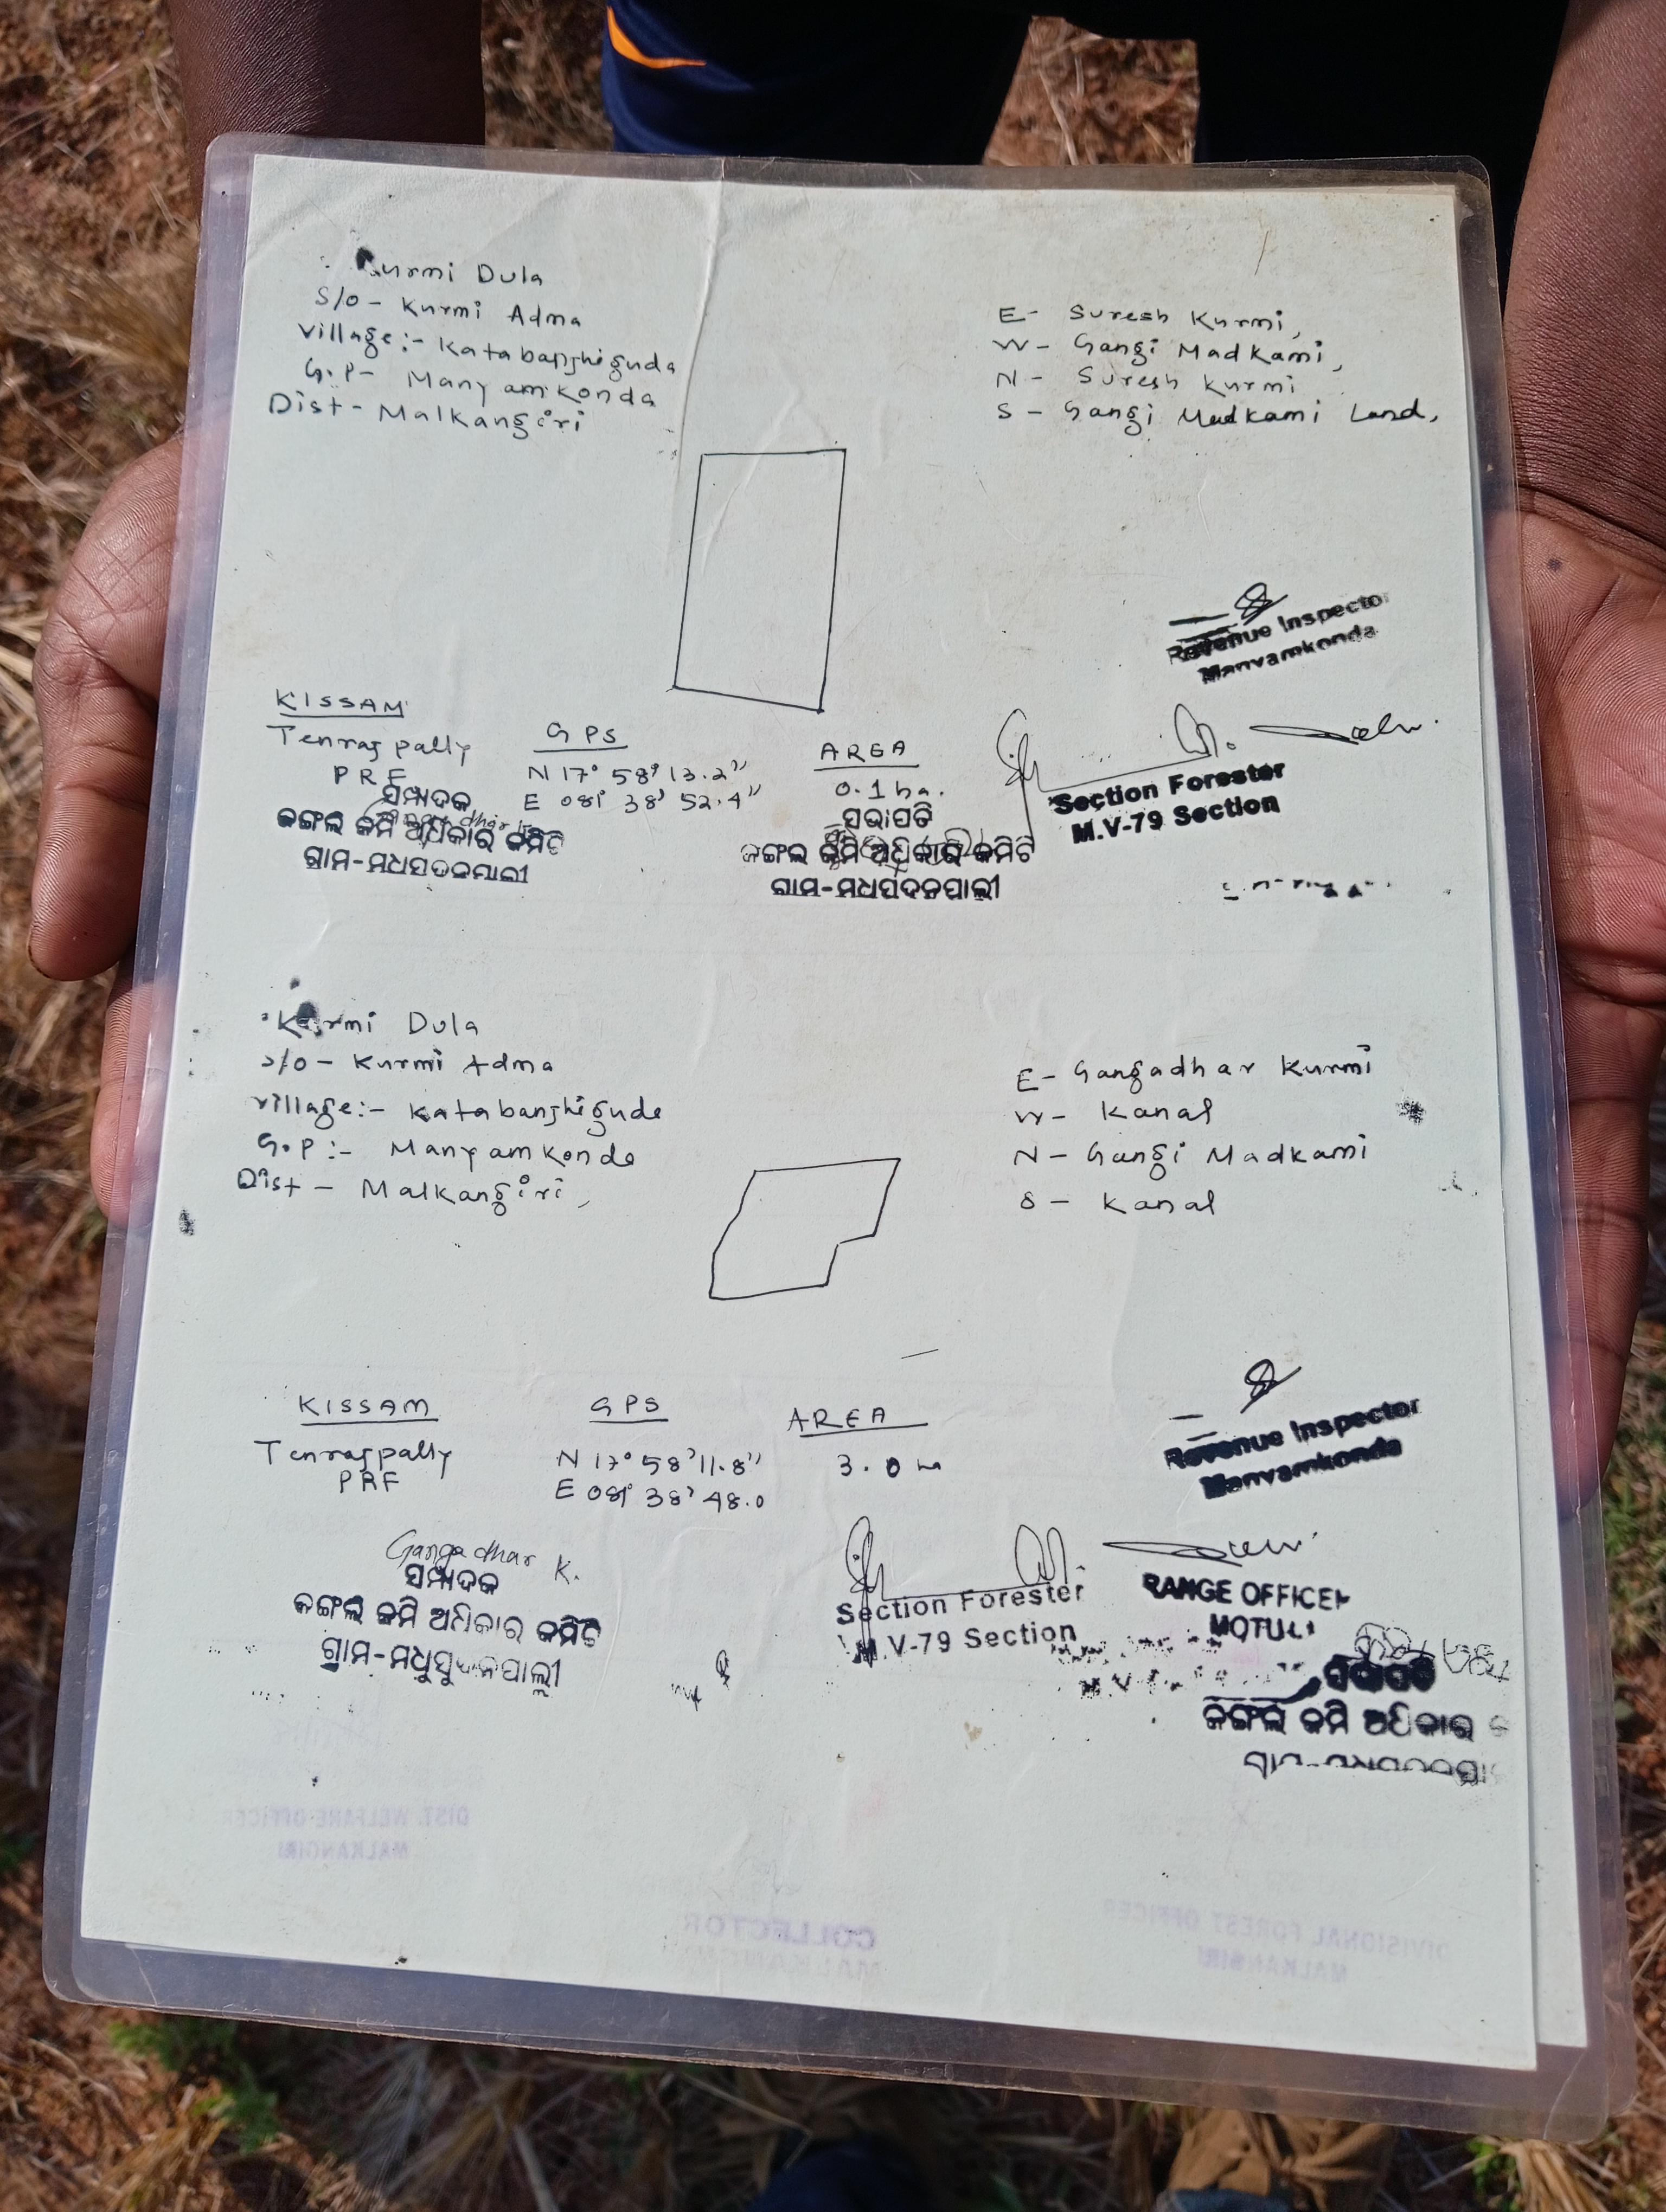 Kurmi Dula
S/o - Kurmi Adma
Village:- Katabanshiguda
G.P- Manyamkonda
Dist- Malkangiri
E- Suresh Kurmi,
W- Gangi Madkami,
N- Suresh Kurmi
S- Gangi Madkami Land,
Revenue Inspector
Manyamkonda
KISSAM
Tenraspally
PRF
GPS
N 17° 58' 13.2"
E 081° 38' 52.4"
AREA
0.1 ha.
Section Forester
M.V-79 Section
ସମ୍ପାଦକ
ଜଙ୍ଗଲ ଜମି ଅଧିକାର କମିଟି
ସଭାପତି
ଜଙ୍ଗଲ ଜମି ଅଧିକାର କମିଟି
Kurmi Dula
S/o - Kurmi Adma
Village:- Katabanshigude
G.P:- Manyamkonda
Dist - Malkangiri,
E- Gangadhar Kurmi
W- Kanal
N- Gangi Madkami
S - Kanal
KISSAM
Tenraspally
PRF
GPS
N 17° 58' 11.8"
E 081° 38' 48.0
AREA
3.0 ha
Revenue Inspector
Manyamkonda
Gangadhar K.
ସମ୍ପାଦକ
ଜଙ୍ଗଲ ଜମି ଅଧିକାର କମିଟି
ଗ୍ରାମ-ମଧୁସୁଦନପାଲ୍ଲୀ
Section Forester
M.V-79 Section
RANGE OFFICER
MOTU
ସଭାପତି
ଜଙ୍ଗଲ ଜମି ଅଧିକାର
DIST. WELFARE OFFICER
MALKANGIRI
COLLECTOR
MALKANGIRI
DIVISIONAL FOREST OFFICER
MALKANGIRI